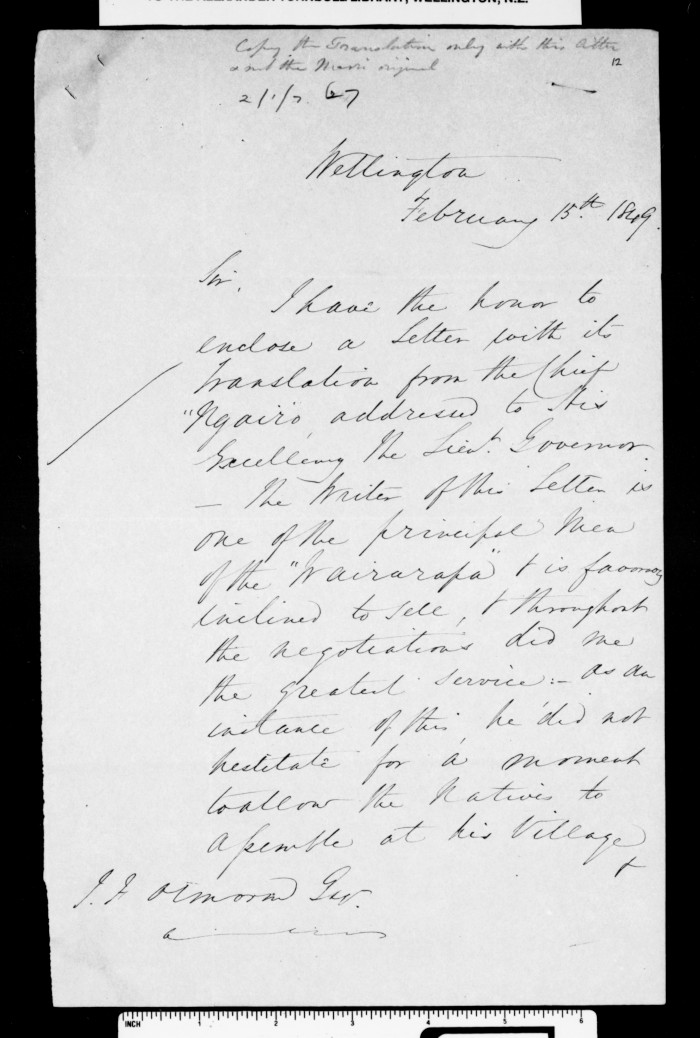 TO THE ALEXANDER TURNBULL LIBRARY, WELLINGTON, N.Z.
Copy the Translation only with this letter
& not the Maori original
12
2/1/7
Wellington
February 15th. 1849.
Sir,
I have the honor to
enclose a Letter with its
translation from the Chief
"Ngairo, addressed to His
Excellency the Lieut. Governor.
— The Writer of this Letter is
one of the principal Men
of the "Wairarapa" & is favorably
inclined to sell, & throughout
the negotiations did me
the greatest service:- as an
instance of this, he did not
hestitate for a moment
to allow the Natives to
assemble at his Village
&
INCH 1 2 3 4 5 6